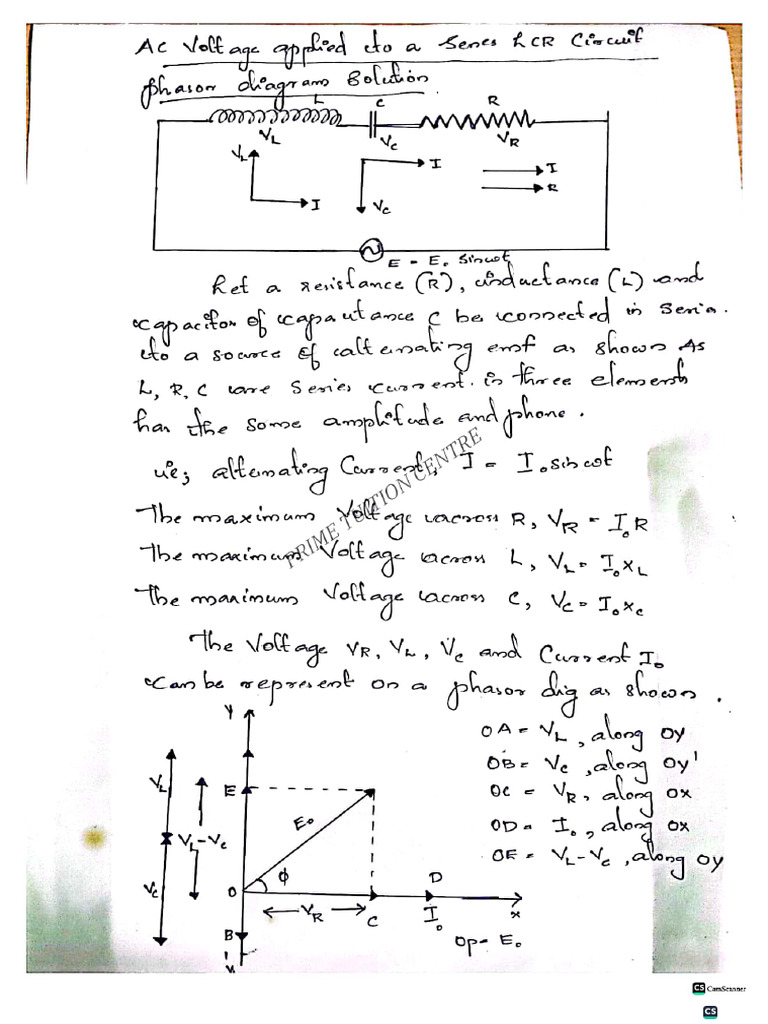 AC Voltage applied to a Series LCR Circuit
phasor diagram Solution.
L C R
VL VC VR
VL I
I VC
I
R
E = E₀ sinωt
Let a resistance (R), inductance (L) and
capacitor of capacitance C be connected in series.
to a source of alternating emf as shown As
L, R, C are series current. in three elements
has the same amplitude and phone.
ie; alternating Current, I = I₀ sin ωt
The maximum Voltage across R, VR = I₀R
The maximum Voltage across L, VL = I₀XL
The maximum Voltage across C, VC = I₀Xc
PRIME TUTION CENTRE
The Voltage VR, VL, VC and Current I₀
can be represent on a phasor dig as shown.
OA = VL, along oy
OB = VC, along oy'
OC = VR, along ox
OD = I₀, along ox
OE = VL-VC, along oy
Y
VL
E
E₀
VL-VC
VC
O ϕ D
VR C I₀ x
B
OP = E₀
CS CamScanner
CS